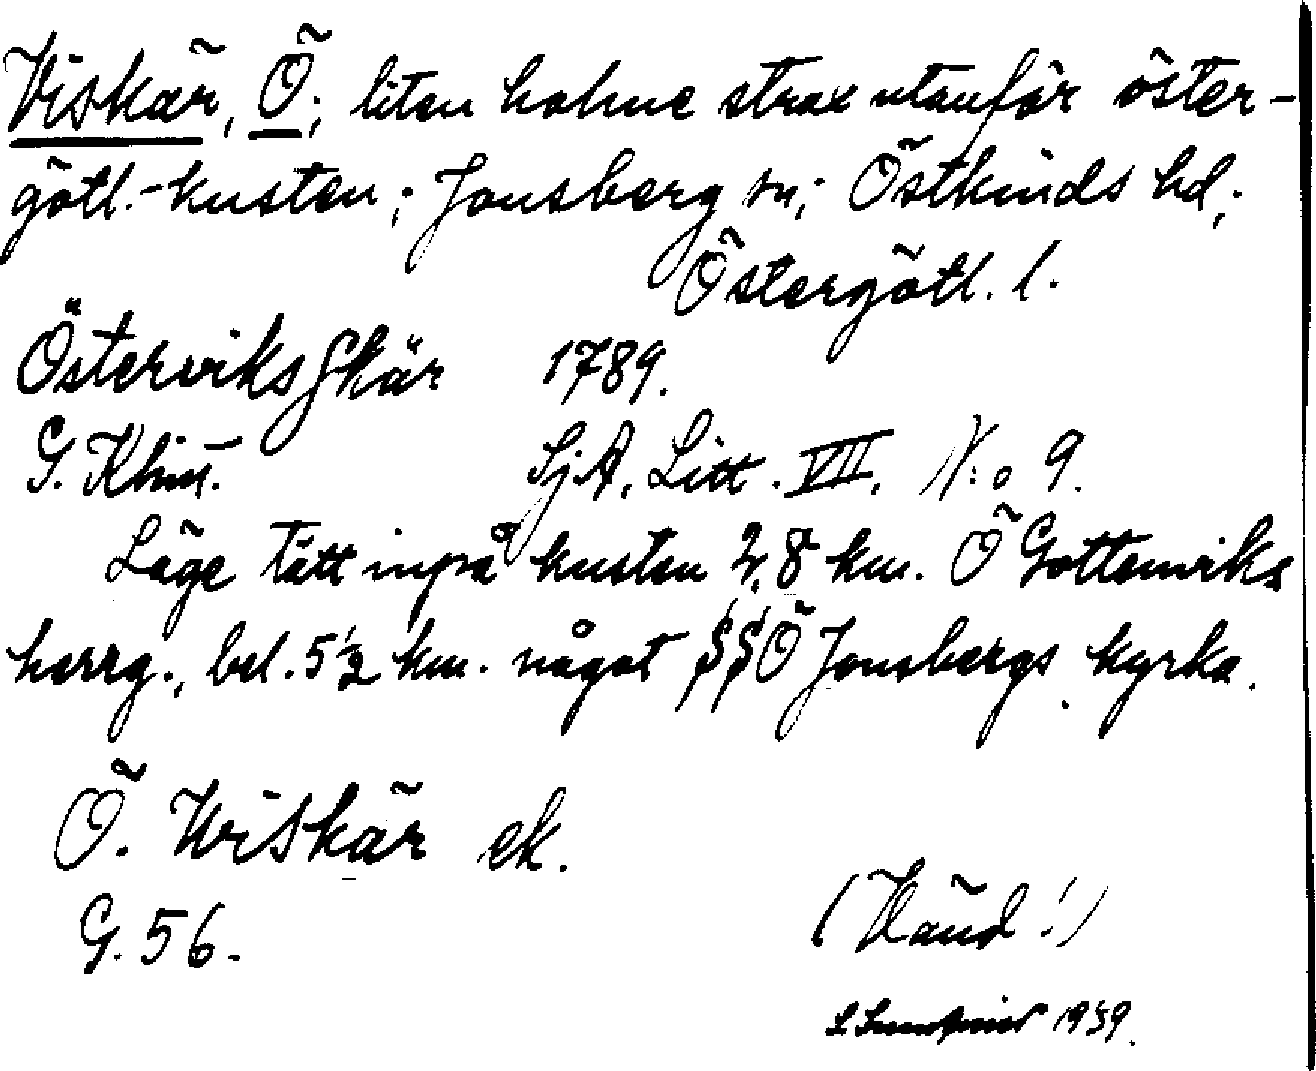 Viskär, Ö; liten holme strax utanför öster-
götl.-kusten; Jonsberg sn; Östkinds hd;
Östergötl. l.
Österviksskär 1789.
G. Klint. SjA. Litt. VII. N:o 9.
Läge tätt inpå kusten 2,8 km. Ö Gottenviks
herrg., bel. 5 1/2 km. något SSÖ Jonsbergs kyrka.
Ö. Wiskär ek.
G. 56.
(Vänd!)
1939.